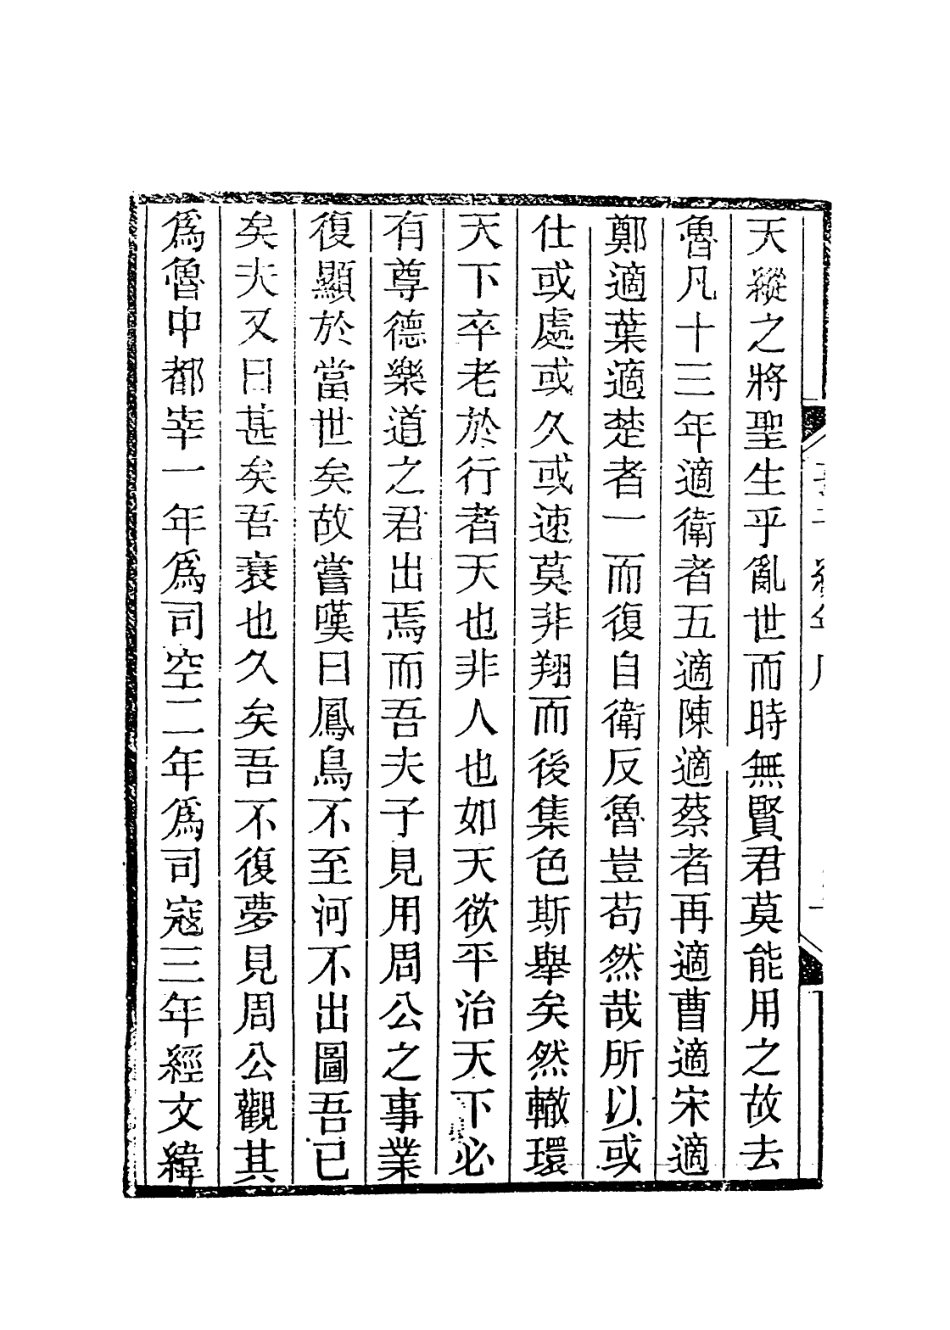 天縱之將聖生乎亂世而時無賢君莫能用之故去
魯凡十三年適衛者五適陳適蔡者再適曹適宋適
鄭適葉適楚者一而復自衛反魯豈苟然哉所以或
仕或處或久或速莫非翔而後集色斯舉矣然轍環
天下卒老於行者天也非人也如天欲平治天下必
有尊德樂道之君出焉而吾夫子見用周公之事業
復顯於當世矣故嘗嘆曰鳳鳥不至河不出圖吾已
矣夫又曰甚矣吾衰也久矣吾不復夢見周公觀其
爲魯中都宰一年爲司空二年爲司寇三年經文緯